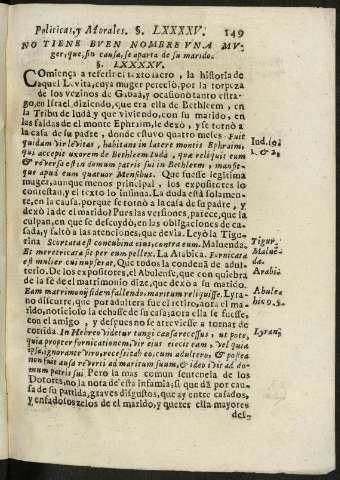 Politicas, y Morales. §. LXXXXV. 149
NO TIENE BVEN NOMBRE VNA MV-
ger, que, sin causa, se aparta de su marido.
§. LXXXXV.
COmiença a referir el texto sacro, la historia de
aquel Levita, cuya muger pereciò, por la torpeza
de los vezinos de Gabaà, y ocasionò tanto estra-
go, en Israel, diziendo, que era ella de Bethleem, en
la Tribu de Iudà y que viviendo, con su marido, en
las faldas de el monte Ephraim, le dexò, y se tornò a
la casa de su padre, donde estuvo quatro meses. Fuit
quidam vir levites, habitans in latere montis Ephraim,
qui accepit uxorem de Bethleem Iuda, quæ reliquit eum
& reversa est in domum patris sui in Bethleem, mansit-
que apud eum quatuor Mensibus. Que fuesse legitima
muger, aunque menos principal, los expositores lo
contestan, y el texto lo insinua. La duda està solamen-
te, en la causa, porque se tornò a la casa de su padre, y
dexò la de el marido? Pues las versiones, parece, que la
culpan, en que se descuydò, en las obligaciones de ca-
sada, y faltò a las atenciones, que devia. Leyò la Tigu-
rina Scortata est concubina eius, contra eum. Maluenda.
Et meretricata est per eum pellex. La Arabica. Fornicata
est mulier cui nupserat. Que todos la condenã de adul-
terio. De los expositores, el Abulense, que con quiebra
de la fè de el matrimonio dize, que dexò a su marido.
Eam matrimonij fidem fallendo, maritum reliquisse. Lyra-
no discurre, que por adultera fue el retiro, aora el ma-
rido, noticioso la echasse de su casa, aora ella se fuesse,
con el amigo, y despues no se atreviesse a tornar de
corrida. In Hebræo videtur tangi causa recessus, ut pote,
quia propter fornicationem, vir eius eiecit eam, vel quia
ipsa, ignorante viro, recessit ab eo, cum adultero, & postea
non fuit ausa reverti ad maritum suum, & ideo ivit ad do-
mum patris sui Pero la mas comun sentencia de los
Dotores, no la nota de esta infamia; si que dà por cau-
sa de su partida, graves disgustos, que ay entre casados,
y enfadosos zelos de el marido, y querer ella mayores
des-
Iud. 19.
1. & 2.
Tigur.
Maluẽ-
da.
Arabic.
Abulẽ
hic q. 2.
Lyran.